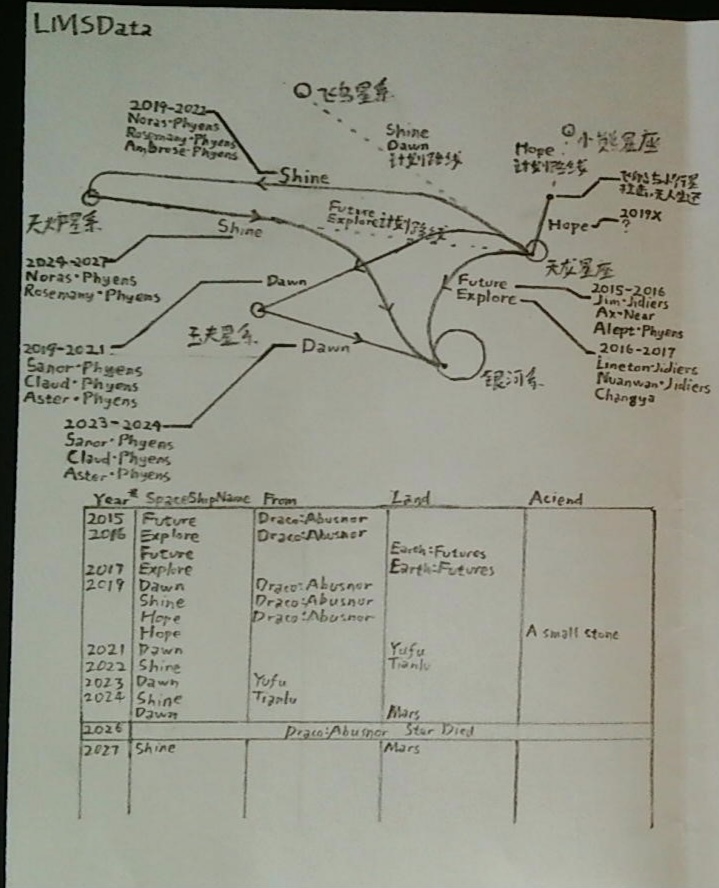 LMSData
飞鸟星系
2019-2022
Noras·Phyens
Rosemany·Phyens
Ambrose·Phyens
Shine
Shine
Dawn
计划路线
Hope
计划路线
小熊星座
飞船与小行星
撞击,无人生还
天炉星系
Shine
Future
Explore计划路线
Hope
2019X
?
天龙星座
2024-2027
Noras·Phyens
Rosemany·Phyens
Dawn
Future
Explore
2015-2016
Jim·Jidiers
Ax·Near
Alept·Phyens
玉夫星系
Dawn
银河系
2016-2017
Lineton·Jidiers
Nuanwan·Jidiers
Changya
2019-2021
Sanor·Phyens
Claud·Phyens
Aster·Phyens
2023-2024
Sanor·Phyens
Claud·Phyens
Aster·Phyens
Year* SpaceShipName From Land Aciend
2015 Future Draco:Abusnor
2016 Explore Draco:Abusnor
Future Earth:Futures
2017 Explore Earth:Futures
2019 Dawn Draco:Abusnor
Shine Draco:Abusnor
Hope Draco:Abusnor
Hope A small stone
2021 Dawn Yufu
2022 Shine Tianlu
2023 Dawn Yufu
2024 Shine Tianlu
Dawn Mars
2026 Draco:Abusnor Star Died
2027 Shine Mars